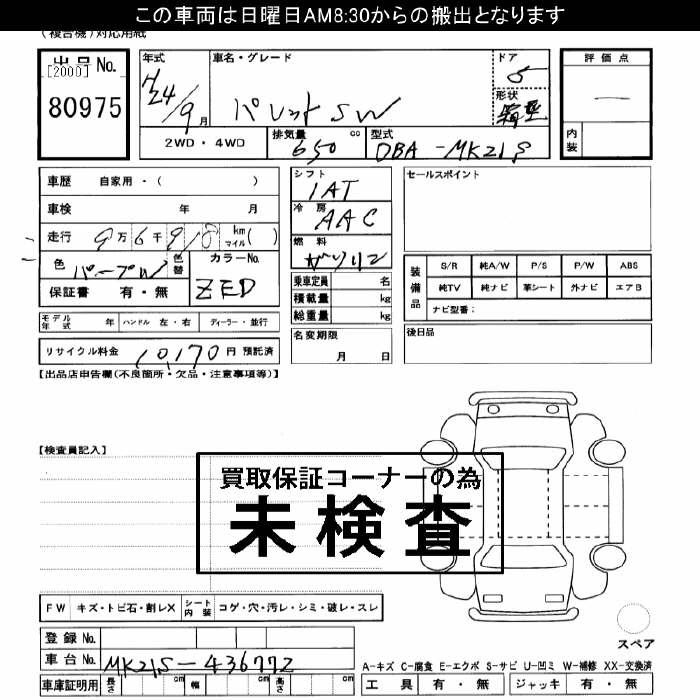 この車両は日曜日AM8:30からの搬出となります
(複合機)対応用紙
出品No.
[2000]
80975
年式 車名・グレード ドア 評価点
H24/9月 パレットSW 5
形状 箱型
2WD・4WD 排気量 650 cc 型式 DBA-MK21S 内装
車歴 自家用・( )
車検 年 月
走行 9万6千918 km マイル( )
色 パープル 色替 カラーNo. ZED
保証書 有・無
シフト IAT
冷房 AAC
燃料 ガソリン
乗車定員 名
積載量 kg
総重量 kg
名変期限 月 日
セールスポイント
装備品 S/R 純A/W P/S P/W ABS
純TV 純ナビ 革シート 外ナビ エアB
ナビ型番:
後日品
モデル年式 年 ハンドル 左・右 ディーラー・並行
リサイクル料金 10,170 円 預託済
【出品店申告欄(不良箇所・欠品・注意事項等)】
【検査員記入】
買取保証コーナーの為
未検査
FW キズ・トビ石・割レX シート内装 コゲ・穴・汚レ・シミ・破レ・スレ
登録No.
車台No. MK21S-436772
車庫証明用 長さ cm 幅 cm 高さ cm
スペア
A-キズ C-腐食 E-エクボ S-サビ U-凹ミ W-補修 XX-交換済
工具 有・無 ジャッキ 有・無